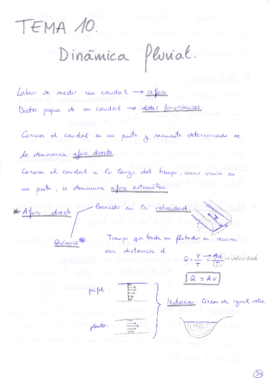 TEMA 10.
Dinámica fluvial.
Labor de medir un caudal → aforo
Datos propios de un caudal → datos foronómicos
Conocer el caudal en un punto y momento determinado se
le denomina aforo directo
Conocer el caudal a lo largo del tiempo, como varía en
un punto, se denomina aforo sistemático
* Aforo directo
Basado en la velocidad
Químico
Tiempo que tarda un flotador en recorrer
una distancia d
Q = V/T → A d/T → velocidad
Q = A v
perfil
planta
Isotacas: líneas de igual veloc